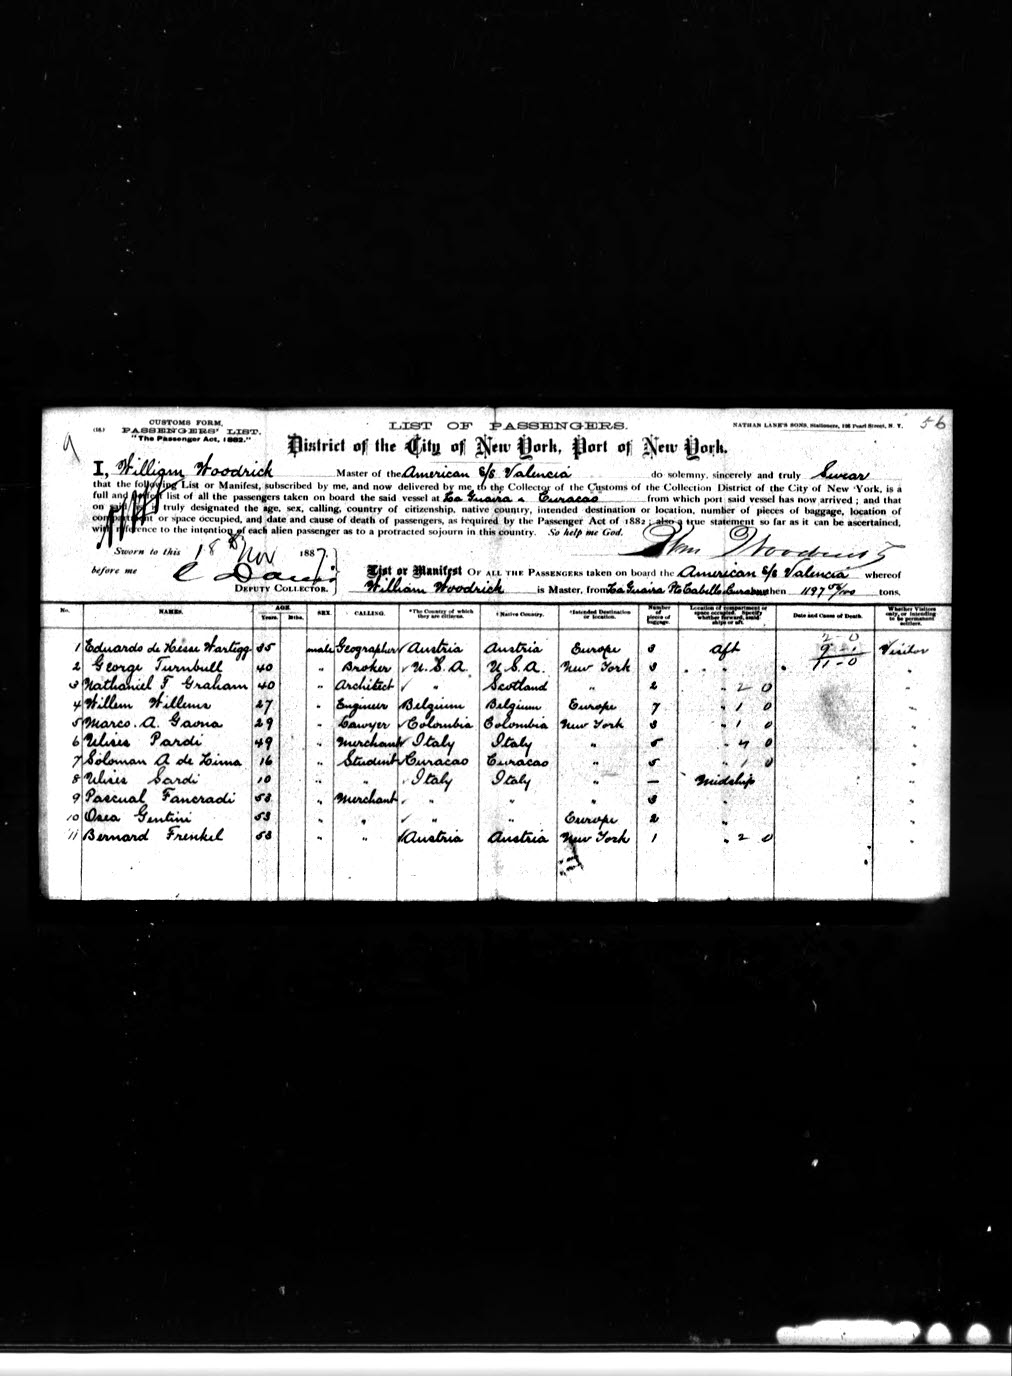 CUSTOMS FORM,
PASSENGERS' LIST.
"The Passenger Act, 1882."
LIST OF PASSENGERS.
NATHAN LANE'S SONS, Stationers, Pearl Street, N. Y.
56
District of the City of New York, Port of New York.
I, William Woodrick Master of the American S/S Valencia do solemny, sincerely and truly Swear
that the following List or Manifest, subscribed by me, and now delivered by me to the Collector of the Customs of the Collection District of the City of New York, is a
full and perfect list of all the passengers taken on board the said vessel at La Guaira & Curacao from which port said vessel has now arrived; and that
on said list is truly designated the age, sex, calling, country of citizenship, native country, intended destination or location, number of pieces of baggage, location of
compartment or space occupied, and date and cause of death of passengers, as required by the Passenger Act of 1882; also a true statement so far as it can be ascertained,
with reference to the intention of each alien passenger as to a protracted sojourn in this country. So help me God.
Sworn to this 18 Nov 1887.
before me
DEPUTY COLLECTOR.
Wm Woodrick
List or Manifest OF ALL THE PASSENGERS taken on board the American S/S Valencia whereof
William Woodrick is Master, from La Guaira Pto Cabello Curacao burthen 1197 tons.
No. NAMES. AGE. Years. Mths. SEX. CALLING. *The Country of which they are citizens. †Native Country. ‡Intended Destination or location. Number of pieces of baggage. Location of compartment or space occupied. Specify whether forward, amidships or aft. Date and Cause of Death. Whether Visitors only, or intending to be permanent settlers.
2-0
9-
11-0
1 Eduardo de Hesse Wartegg 35 male Geographer Austria Austria Europe 3 Aft Visitor
2 George Turnbull 40 " Broker U.S.A. U.S.A. New York 3 " "
3 Nathaniel F Graham 40 " Architect " Scotland " 2 " 2 0 "
4 Willem Willems 27 " Engineer Belgium Belgium Europe 7 " 1 0 "
5 Marco. A. Gaona 29 " Lawyer Colombia Colombia New York 3 " 1 0 "
6 Ulises Pardi 49 " Merchant Italy Italy " 5 " 4 0 "
7 Soloman A de Lima 16 " Student Curacao Curacao " 5 " 1 0 "
8 Ulises Sardi 10 " " Italy Italy " — Midship "
9 Pascual Fancradi 53 " Merchant " " " 3 " "
10 Osea Gentini 53 " " " " Europe 2 " "
11 Bernard Frenkel 53 " " Austria Austria New York 1 " 2 0 "